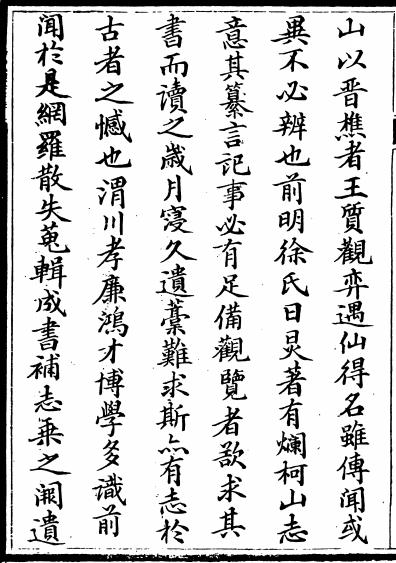 山以晋樵者王質觀弈遇仙得名雖傳聞或
異不必辨也前明徐氏日炅著有爛柯山志
意其纂言記事必有足備觀覽者欲求其
書而讀之歲月寖久遺藁難求斯亦有志於
古者之憾也渭川孝廉鴻才博學多識前
聞於是網羅散失蒐輯成書補志乗之闕遺